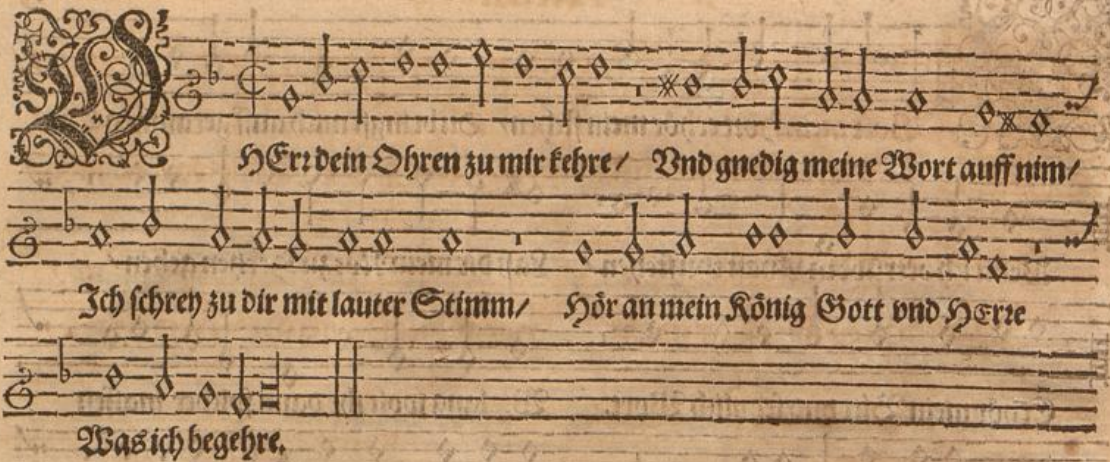 O HErr dein Ohren zu mir kehre/ Vnd gnedig meine Wort auff nim/
Ich schrey zu dir mit lauter Stimm/ Hör an mein König Gott vnd HErre
Was ich begehre.